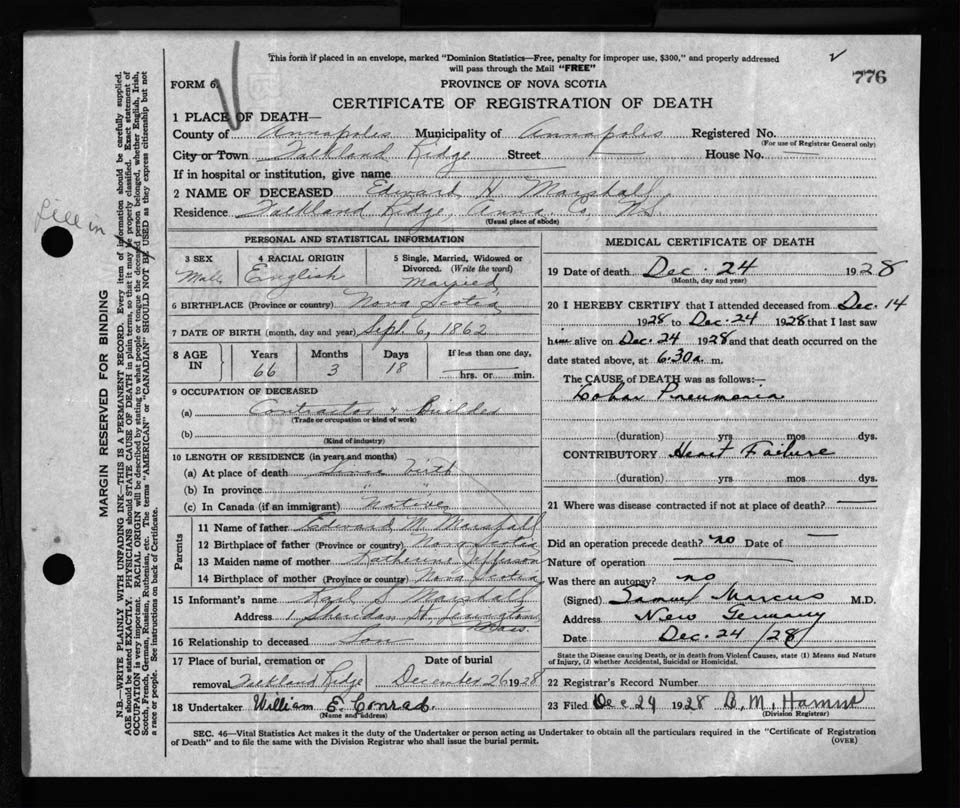 This form if placed in an envelope, marked "Dominion Statistics—Free, penalty for improper use, $300," and properly addressed
will pass through the Mail "FREE"
776
FORM 6.
PROVINCE OF NOVA SCOTIA
CERTIFICATE OF REGISTRATION OF DEATH
1 PLACE OF DEATH—
County of Annapolis Municipality of Annapolis Registered No.
(For use of Registrar General only)
City or Town Falkland Ridge Street — House No. —
If in hospital or institution, give name
2 NAME OF DECEASED Edward H. Marshall
Residence Falkland Ridge, Anna. Co. N.S.
(Usual place of abode)
PERSONAL AND STATISTICAL INFORMATION
3 SEX Male
4 RACIAL ORIGIN English
5 Single, Married, Widowed or Divorced. (Write the word) Married
6 BIRTHPLACE (Province or country) Nova Scotia
7 DATE OF BIRTH (month, day and year) Sept. 6, 1862
8 AGE IN Years 66 Months 3 Days 18 If less than one day, — hrs. or — min.
9 OCCUPATION OF DECEASED
(a) Contractor & Builder
(Trade or occupation or kind of work)
(b)
(Kind of industry)
10 LENGTH OF RESIDENCE (in years and months)
(a) At place of death Since birth
(b) In province " "
(c) In Canada (if an immigrant) Native
Parents
11 Name of father Edward M. Marshall
12 Birthplace of father (Province or country) Nova Scotia
13 Maiden name of mother Katherine Jefferson
14 Birthplace of mother (Province or country) Nova Scotia
15 Informant's name Karl S. Marshall
Address 1 Sheridan St. Lexington Mass
16 Relationship to deceased Son
17 Place of burial, cremation or removal Falkland Ridge
Date of burial December 26 1928
18 Undertaker William E. Conrad
(Name and address)
MEDICAL CERTIFICATE OF DEATH
19 Date of death Dec. 24 1928
(Month, day and year)
20 I HEREBY CERTIFY that I attended deceased from Dec. 14
1928 to Dec. 24 1928 that I last saw
him alive on Dec. 24 1928 and that death occurred on the
date stated above, at 6.30 a. m.
The CAUSE of DEATH was as follows:—
Lobar Pneumonia
(duration) yrs mos dys.
CONTRIBUTORY Heart Failure
(duration) yrs mos dys.
21 Where was disease contracted if not at place of death? —
Did an operation precede death? no Date of —
Nature of operation —
Was there an autopsy? no
(Signed) Samuel Marcus M.D.
Address New Germany
Date Dec. 24 /28
State the Disease causing Death, or in death from Violent Causes, state (1) Means and Nature
of Injury, (2) whether Accidental, Suicidal or Homicidal.
22 Registrar's Record Number
23 Filed Dec 29 1928 B. M.
(Division Registrar)
SEC. 46—Vital Statistics Act makes it the duty of the Undertaker or person acting as Undertaker to obtain all the particulars required in the "Certificate of Registration
of Death" and to file the same with the Division Registrar who shall issue the burial permit.
(OVER)
MARGIN RESERVED FOR BINDING
N.B.—WRITE PLAINLY WITH UNFADING INK—THIS IS A PERMANENT RECORD. Every item of information should be carefully supplied.
AGE should be stated EXACTLY. PHYSICIANS should STATE CAUSE OF DEATH in plain terms, so that it may be properly classified. Exact statement of
OCCUPATION is very important. RACIAL ORIGIN will be described by stating to what people or tongue the deceased person belonged, whether English, Irish,
Scotch, French, German, Russian, Ruthenian, etc. The terms "AMERICAN" or "CANADIAN" SHOULD NOT BE USED as they express citizenship but not
a race or people. See instructions on back of Certificate.